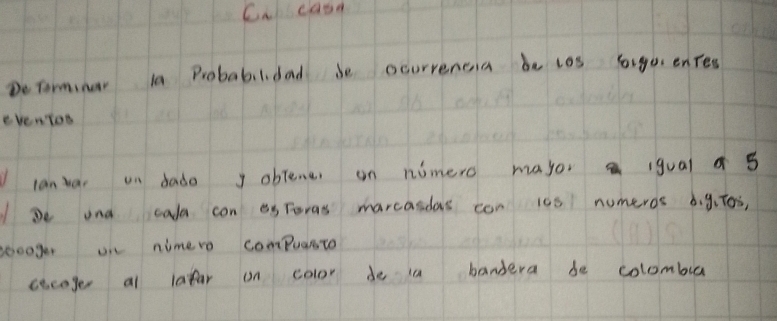 En casa
Determinar la Probabilidad de ocurrencia de los siguientes
eventos
lanzar un dado y obtener un número mayor igual a 5
De una caja con esferas marcadas con los numeros digitos,
escoger un número compuesto
escoger al azar un color de la bandera de colombia